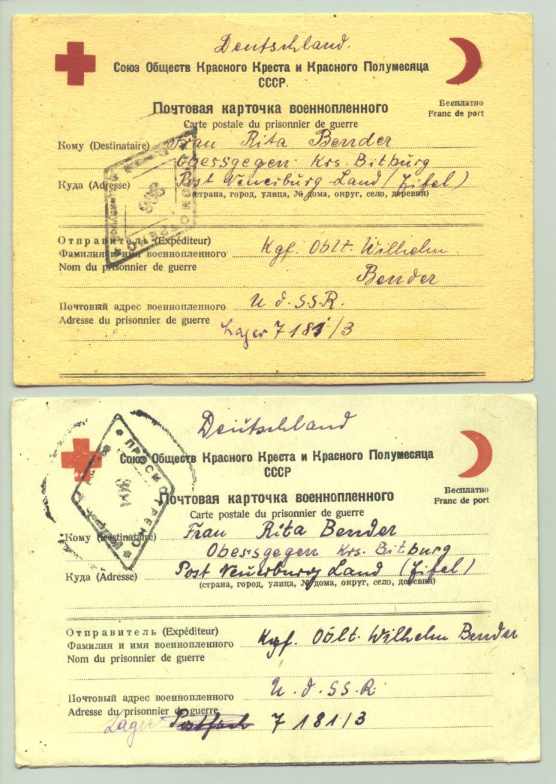 Deutschland.
Союз Обществ Красного Креста и Красного Полумесяца
СССР.
Почтовая карточка военнопленного
Carte postale du prisonnier de guerre
Бесплатно
Franc de port
Кому (Destinataire) Frau Rita Bender
Obersgegen Krs. Bitburg
Куда (Adresse) Post Neuerburg Land (Eifel)
(страна, город, улица, № дома, округ, село, деревня)
Отправитель (Expéditeur)
Фамилия и имя военнопленного Kgf. Oblt. Wilhelm
Nom du prisonnier de guerre Bender
Почтовый адрес военнопленного U.d.SS.R.
Adresse du prisonnier de guerre Lager 7181/3
Deutschland
Союз Обществ Красного Креста и Красного Полумесяца
СССР
Почтовая карточка военнопленного
Carte postale du prisonnier de guerre
Бесплатно
Franc de port
ПРОСМОТРЕНО
Кому (Destinataire) Frau Rita Bender
Obersgegen Krs. Bitburg
Куда (Adresse) Post Neuerburg Land (Eifel)
(страна, город, улица, № дома, округ, село, деревня)
Отправитель (Expéditeur)
Фамилия и имя военнопленного Kgf. Oblt. Wilhelm Bender
Nom du prisonnier de guerre
Почтовый адрес военнопленного U.d.SS.R.
Adresse du prisonnier de guerre
Lager Postfach 7181/3